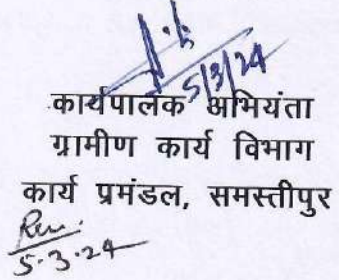 5/3/24
कार्यपालक अभियंता
ग्रामीण कार्य विभाग
कार्य प्रमंडल, समस्तीपुर
5.3.24